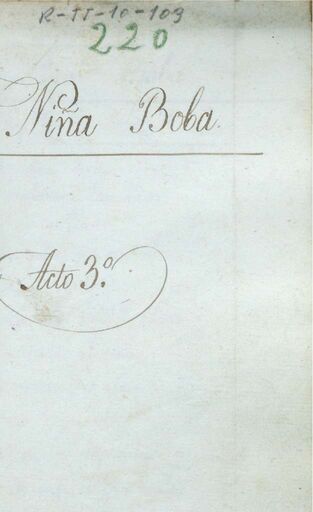 R-II-10-109
220
Niña Boba.
Acto 3.º